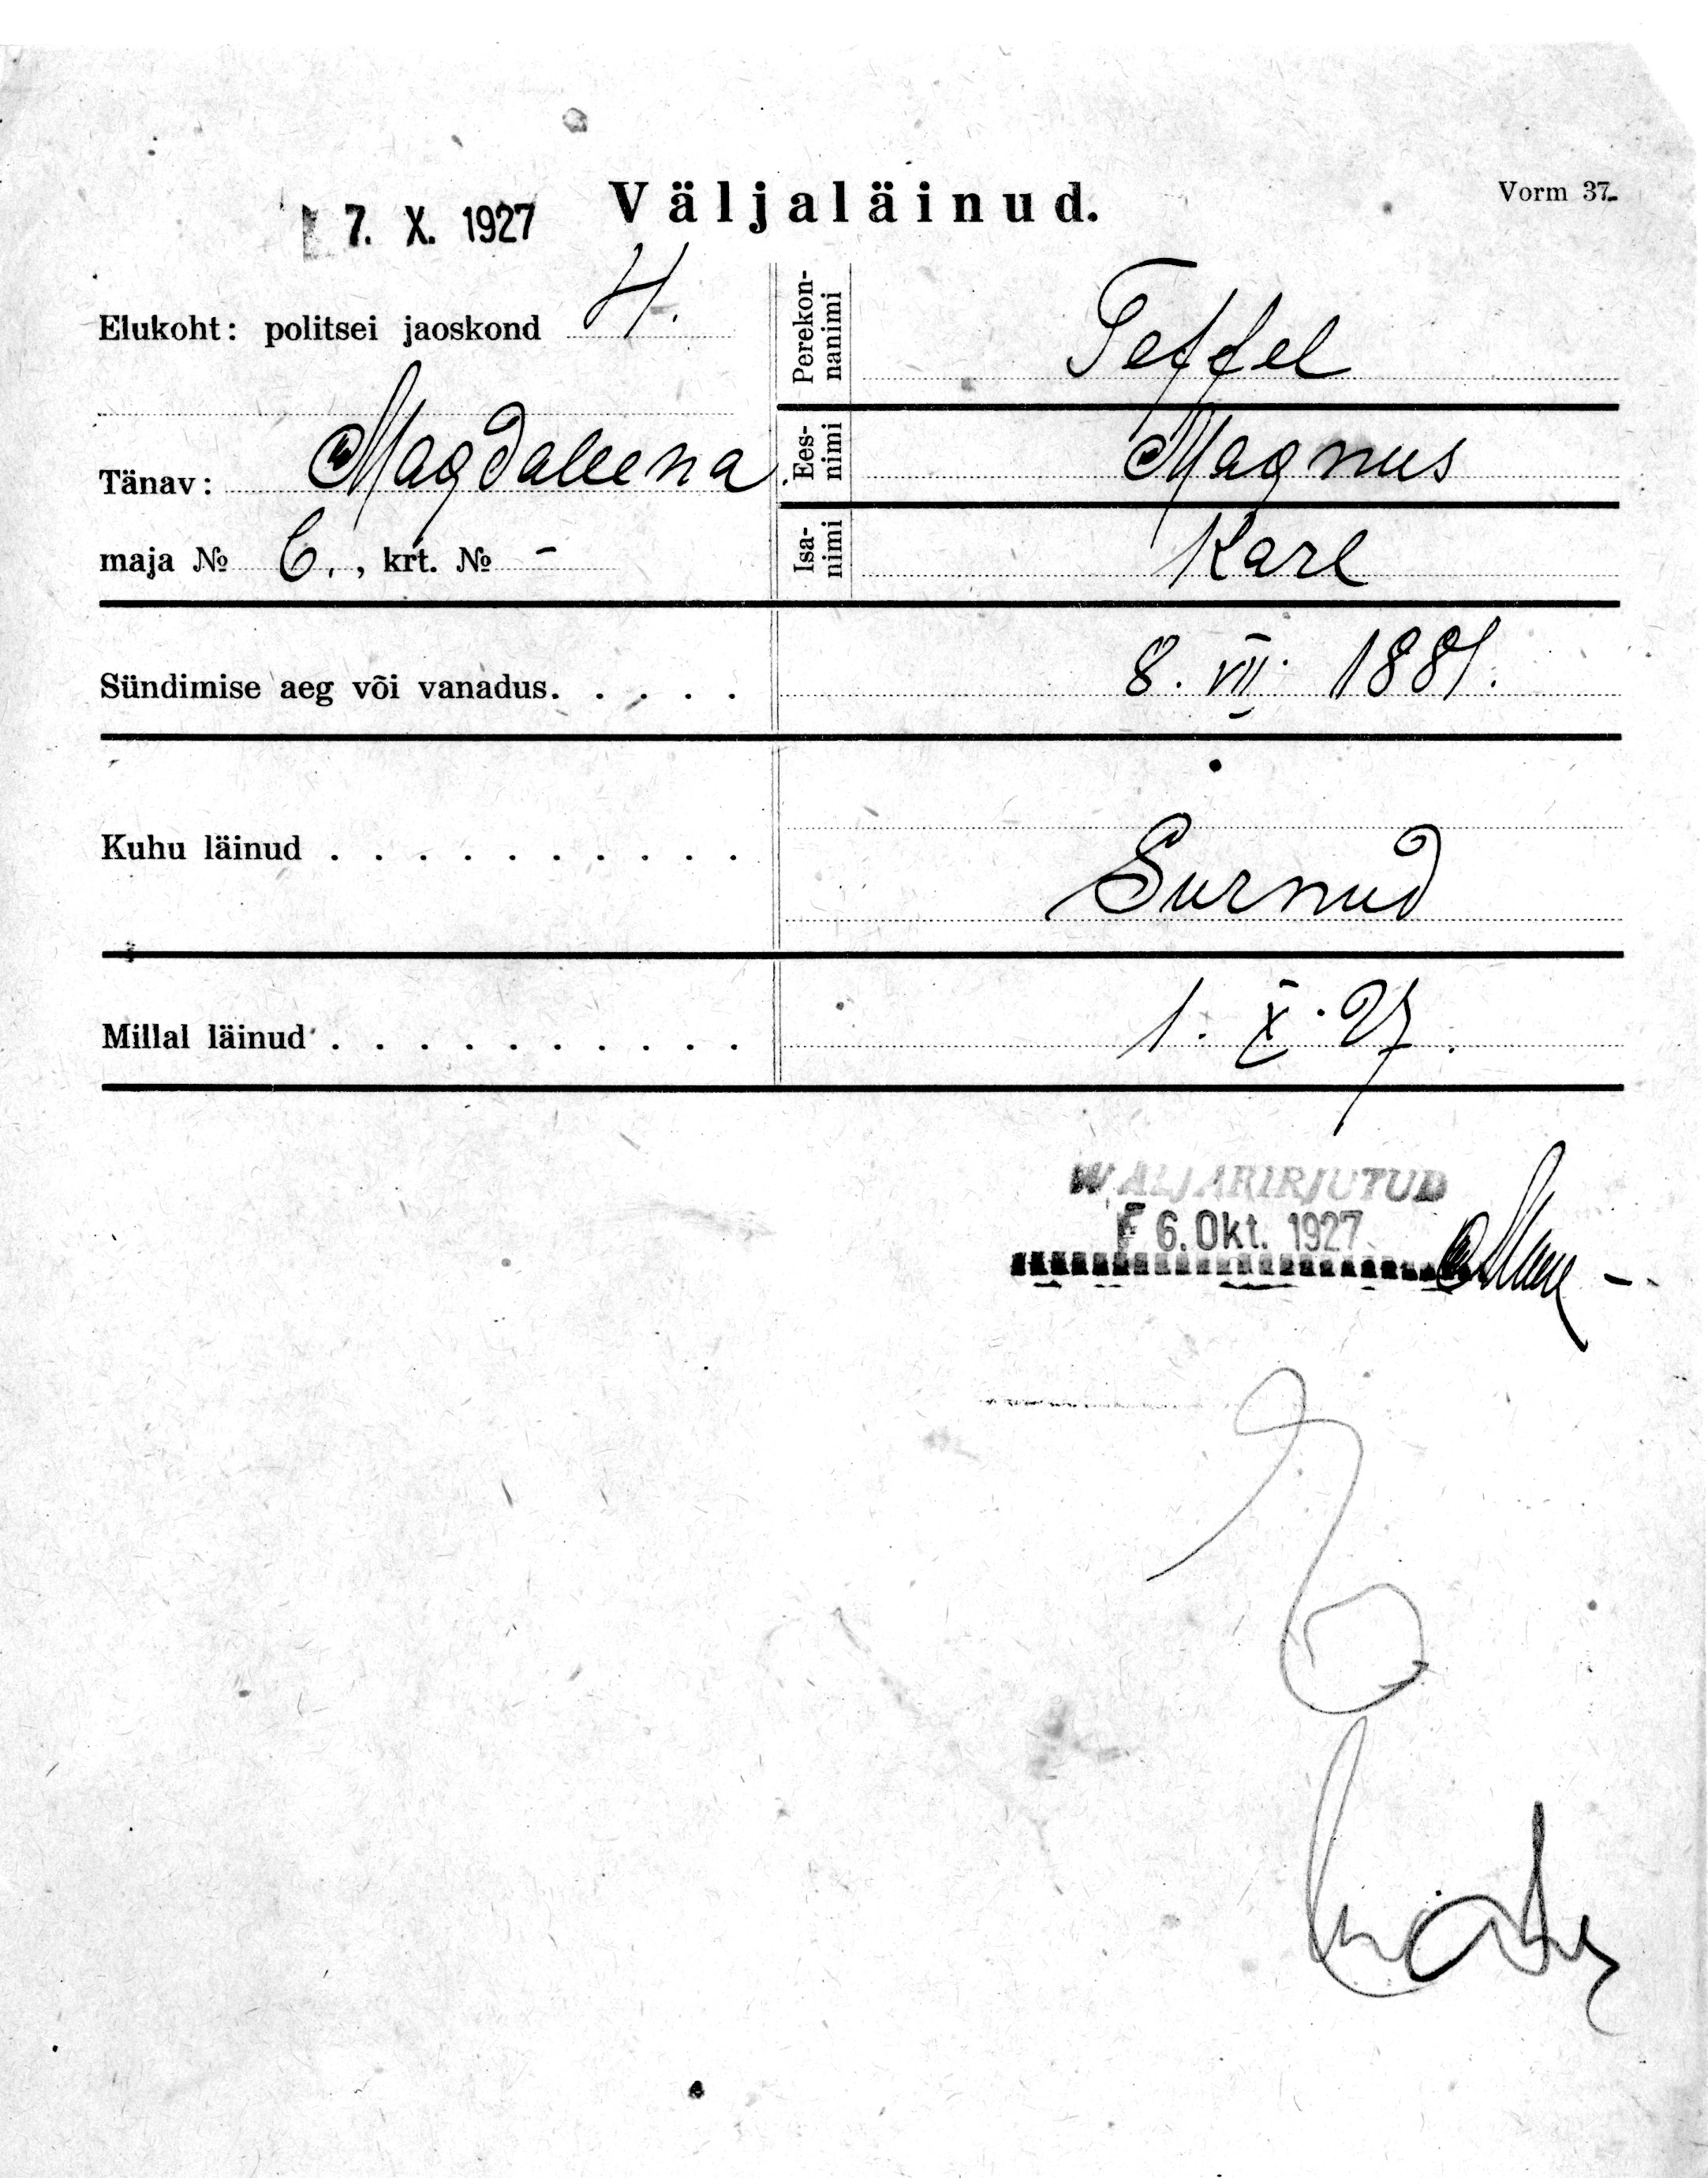 7. X. 1927
Väljaläinud.
Vorm 37.
Elukoht: politsei jaoskond 4.
Tänav: Magdaleena
maja № 6., krt. № -
Perekon-
nanimi
Teffel
Ees-
nimi
Magnus
Isa-
nimi
Karl
Sündimise aeg või vanadus. . . . . 8. VII. 1881.
Kuhu läinud . . . . . . . . . . Surnud
Millal läinud . . . . . . . . . . 1. X. 27.
WALJAKIRJUTUD
6. Okt. 1927